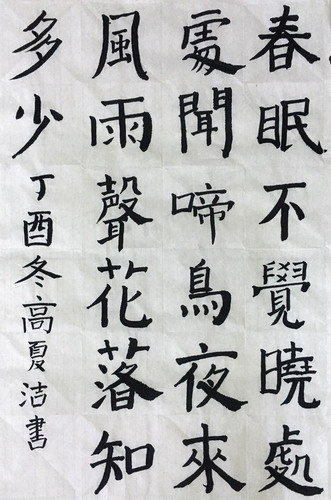 春眠不覺曉處
處聞啼鳥夜來
風雨聲花落知
多少丁酉冬高夏洁書